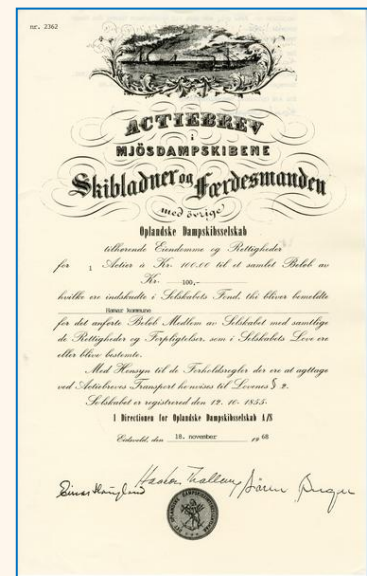 nr. 2362
ACTIEBREV
i
MJÖSDAMPSKIBENE
Skibladner og Færdesmanden
med övrige
Oplandske Dampskibsselskab
tilhørende Eiendomme og Rettigheder
for 1 Actier à Kr. 100.00 til et samlet Beløb av
Kr. 100,-
hvilke ere indskudte i Selskabets Fond, thi bliver bemeldte
Hamar kommune
for det anførte Beløb Medlem av Selskabet med samtlige
de Rettigheder og Forpligtelser, som i Selskabets Love ere
eller blive bestemte.
Med Hensyn til de Forholdsregler der ere at agttage
ved Actiebrevets Transport henvises til Lovenes § 2.
Selskabet er registrered den 12. 10. 1855.
I Directionen for Oplandske Dampskibsselskab A/S
Eidsvold, den 18. november 1968